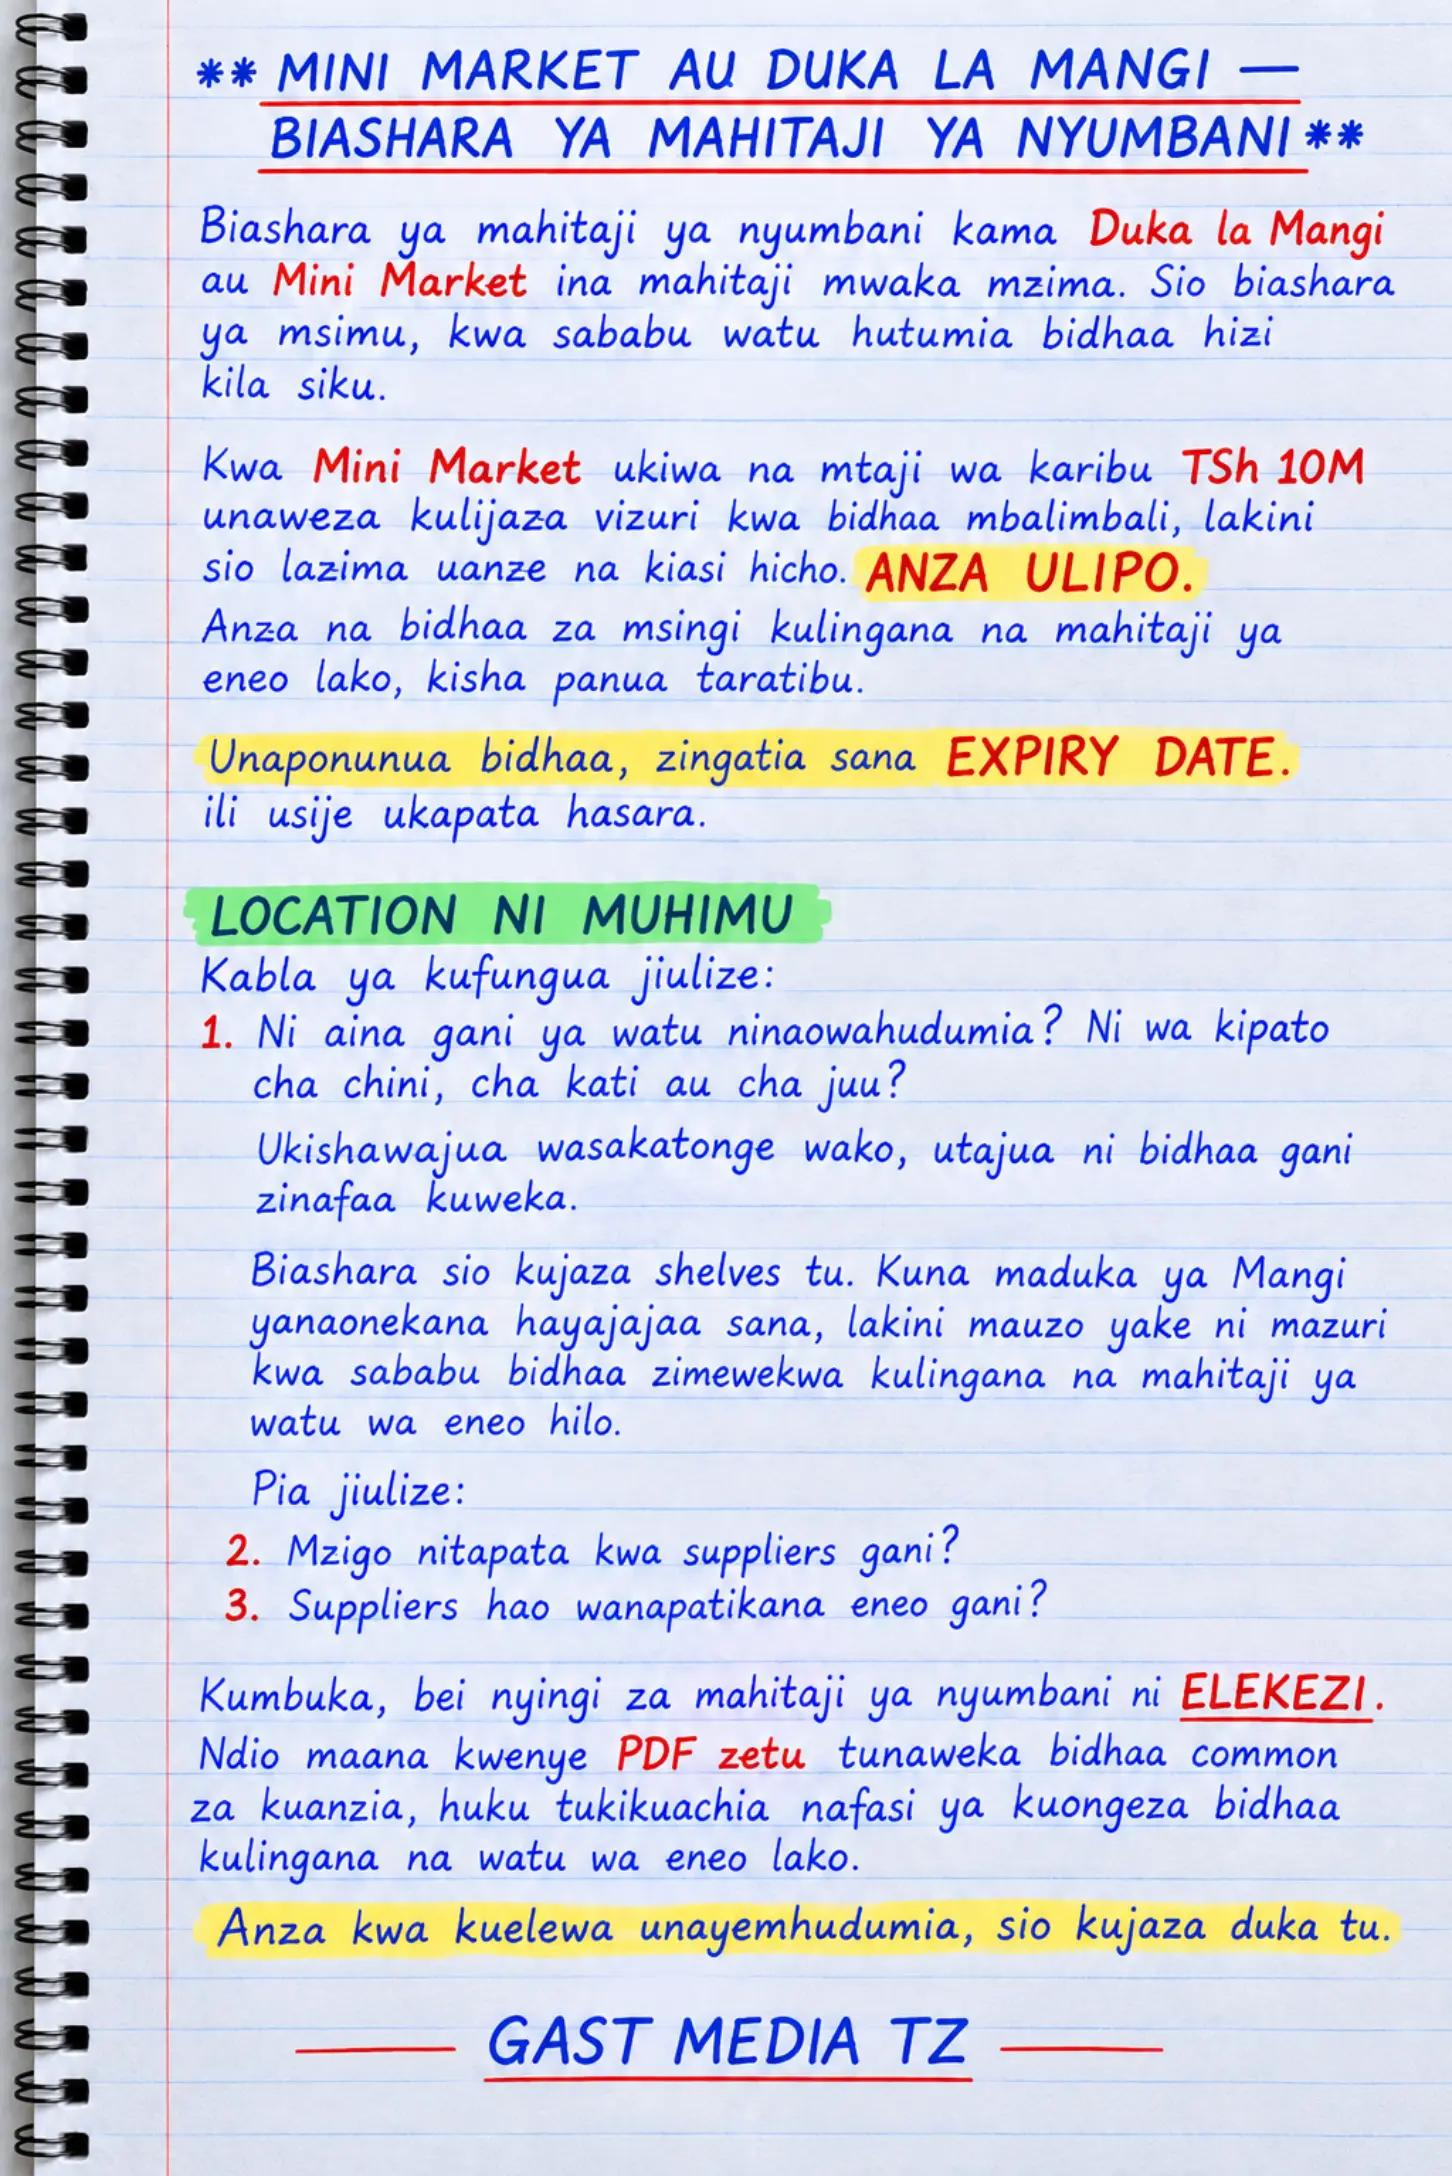 ** MINI MARKET AU DUKA LA MANGI —
BIASHARA YA MAHITAJI YA NYUMBANI **
Biashara ya mahitaji ya nyumbani kama Duka la Mangi
au Mini Market ina mahitaji mwaka mzima. Sio biashara
ya msimu, kwa sababu watu hutumia bidhaa hizi
kila siku.
Kwa Mini Market ukiwa na mtaji wa karibu TSh 10M
unaweza kulijaza vizuri kwa bidhaa mbalimbali, lakini
sio lazima uanze na kiasi hicho. ANZA ULIPO.
Anza na bidhaa za msingi kulingana na mahitaji ya
eneo lako, kisha panua taratibu.
Unaponunua bidhaa, zingatia sana EXPIRY DATE.
ili usije ukapata hasara.
LOCATION NI MUHIMU
Kabla ya kufungua jiulize:
1. Ni aina gani ya watu ninaowahudumia? Ni wa kipato
cha chini, cha kati au cha juu?
Ukishawajua wasakatonge wako, utajua ni bidhaa gani
zinafaa kuweka.
Biashara sio kujaza shelves tu. Kuna maduka ya Mangi
yanaonekana hayajajaa sana, lakini mauzo yake ni mazuri
kwa sababu bidhaa zimewekwa kulingana na mahitaji ya
watu wa eneo hilo.
Pia jiulize:
2. Mzigo nitapata kwa suppliers gani?
3. Suppliers hao wanapatikana eneo gani?
Kumbuka, bei nyingi za mahitaji ya nyumbani ni ELEKEZI.
Ndio maana kwenye PDF zetu tunaweka bidhaa common
za kuanzia, huku tukikuachia nafasi ya kuongeza bidhaa
kulingana na watu wa eneo lako.
Anza kwa kuelewa unayemhudumia, sio kujaza duka tu.
GAST MEDIA TZ